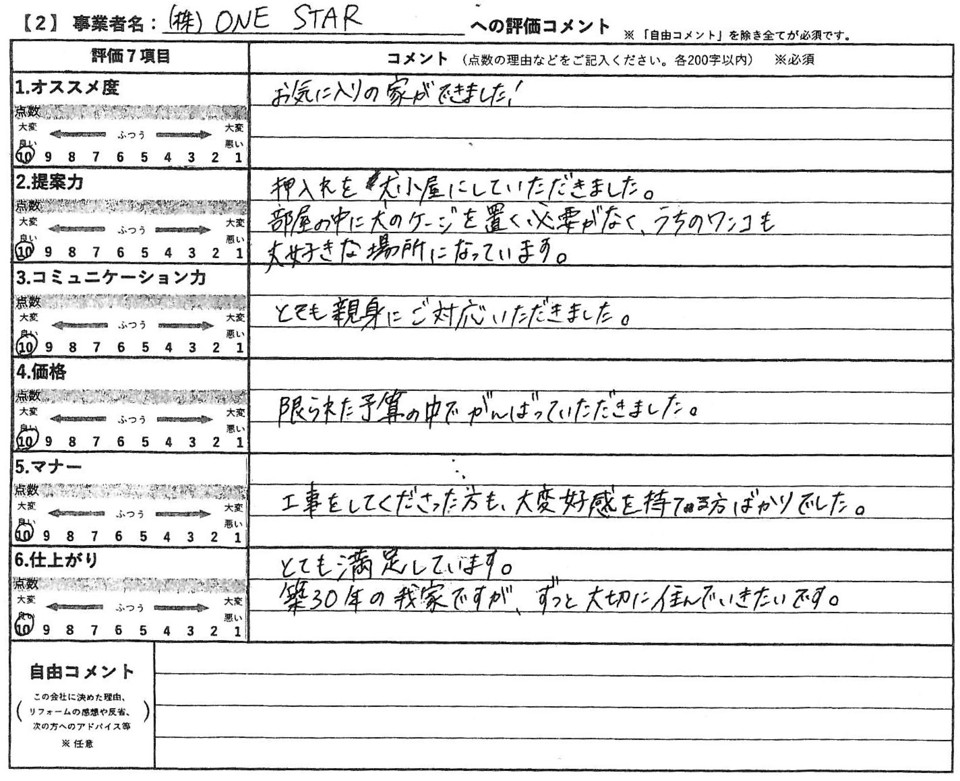 【2】 事業者名：(株) ONE STAR への評価コメント ※「自由コメント」を除き全てが必須です。
評価７項目 コメント （点数の理由などをご記入ください。各200字以内） ※必須
1.オススメ度
お気に入りの家ができました！
点数
大変良い ふつう 大変悪い
10 9 8 7 6 5 4 3 2 1
2.提案力
押入れを犬小屋にしていただきました。
点数
部屋の中に犬のケージを置く必要がなく、うちのワンコも
大変良い ふつう 大変悪い
大好きな場所になっています。
10 9 8 7 6 5 4 3 2 1
3.コミュニケーション力
点数
とても親身にご対応いただきました。
大変良い ふつう 大変悪い
10 9 8 7 6 5 4 3 2 1
4.価格
点数
限られた予算の中でがんばっていただきました。
大変良い ふつう 大変悪い
10 9 8 7 6 5 4 3 2 1
5.マナー
点数
工事をしてくださった方も、大変好感を持てる方ばかりでした。
大変良い ふつう 大変悪い
10 9 8 7 6 5 4 3 2 1
6.仕上がり
とても満足しています。
点数
築30年の我家ですが、ずっと大切に住んでいきたいです。
大変良い ふつう 大変悪い
10 9 8 7 6 5 4 3 2 1
自由コメント
この会社に決めた理由、
リフォームの感想や反省、
次の方へのアドバイス等
※任意